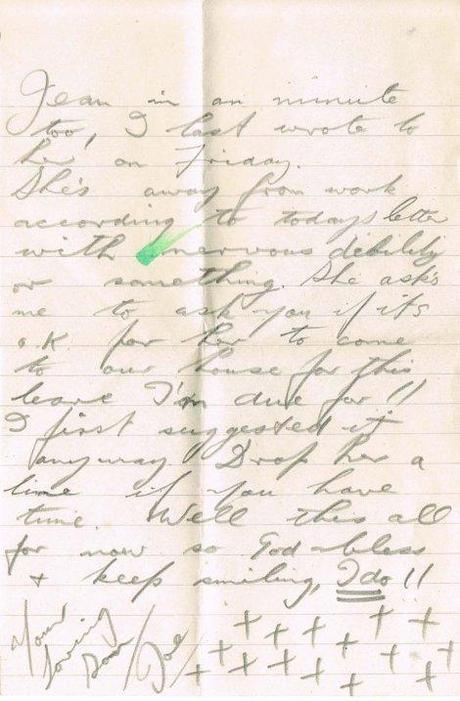 Jean in an minute
too, I last wrote to
her on Friday.
She's away from work
according to todays letter
with nervous debility
or something. She ask's
me to ask you if it's
o.K. for her to come
to our house for this
leave I'm due for !!
I first suggested it
anyway. Drop her a
line if you have
time. Well this all
for now so God-bless
+ keep smiling, I do !!
Your
loving
Son
Joe
+ + + + + + + + + + + + + + +